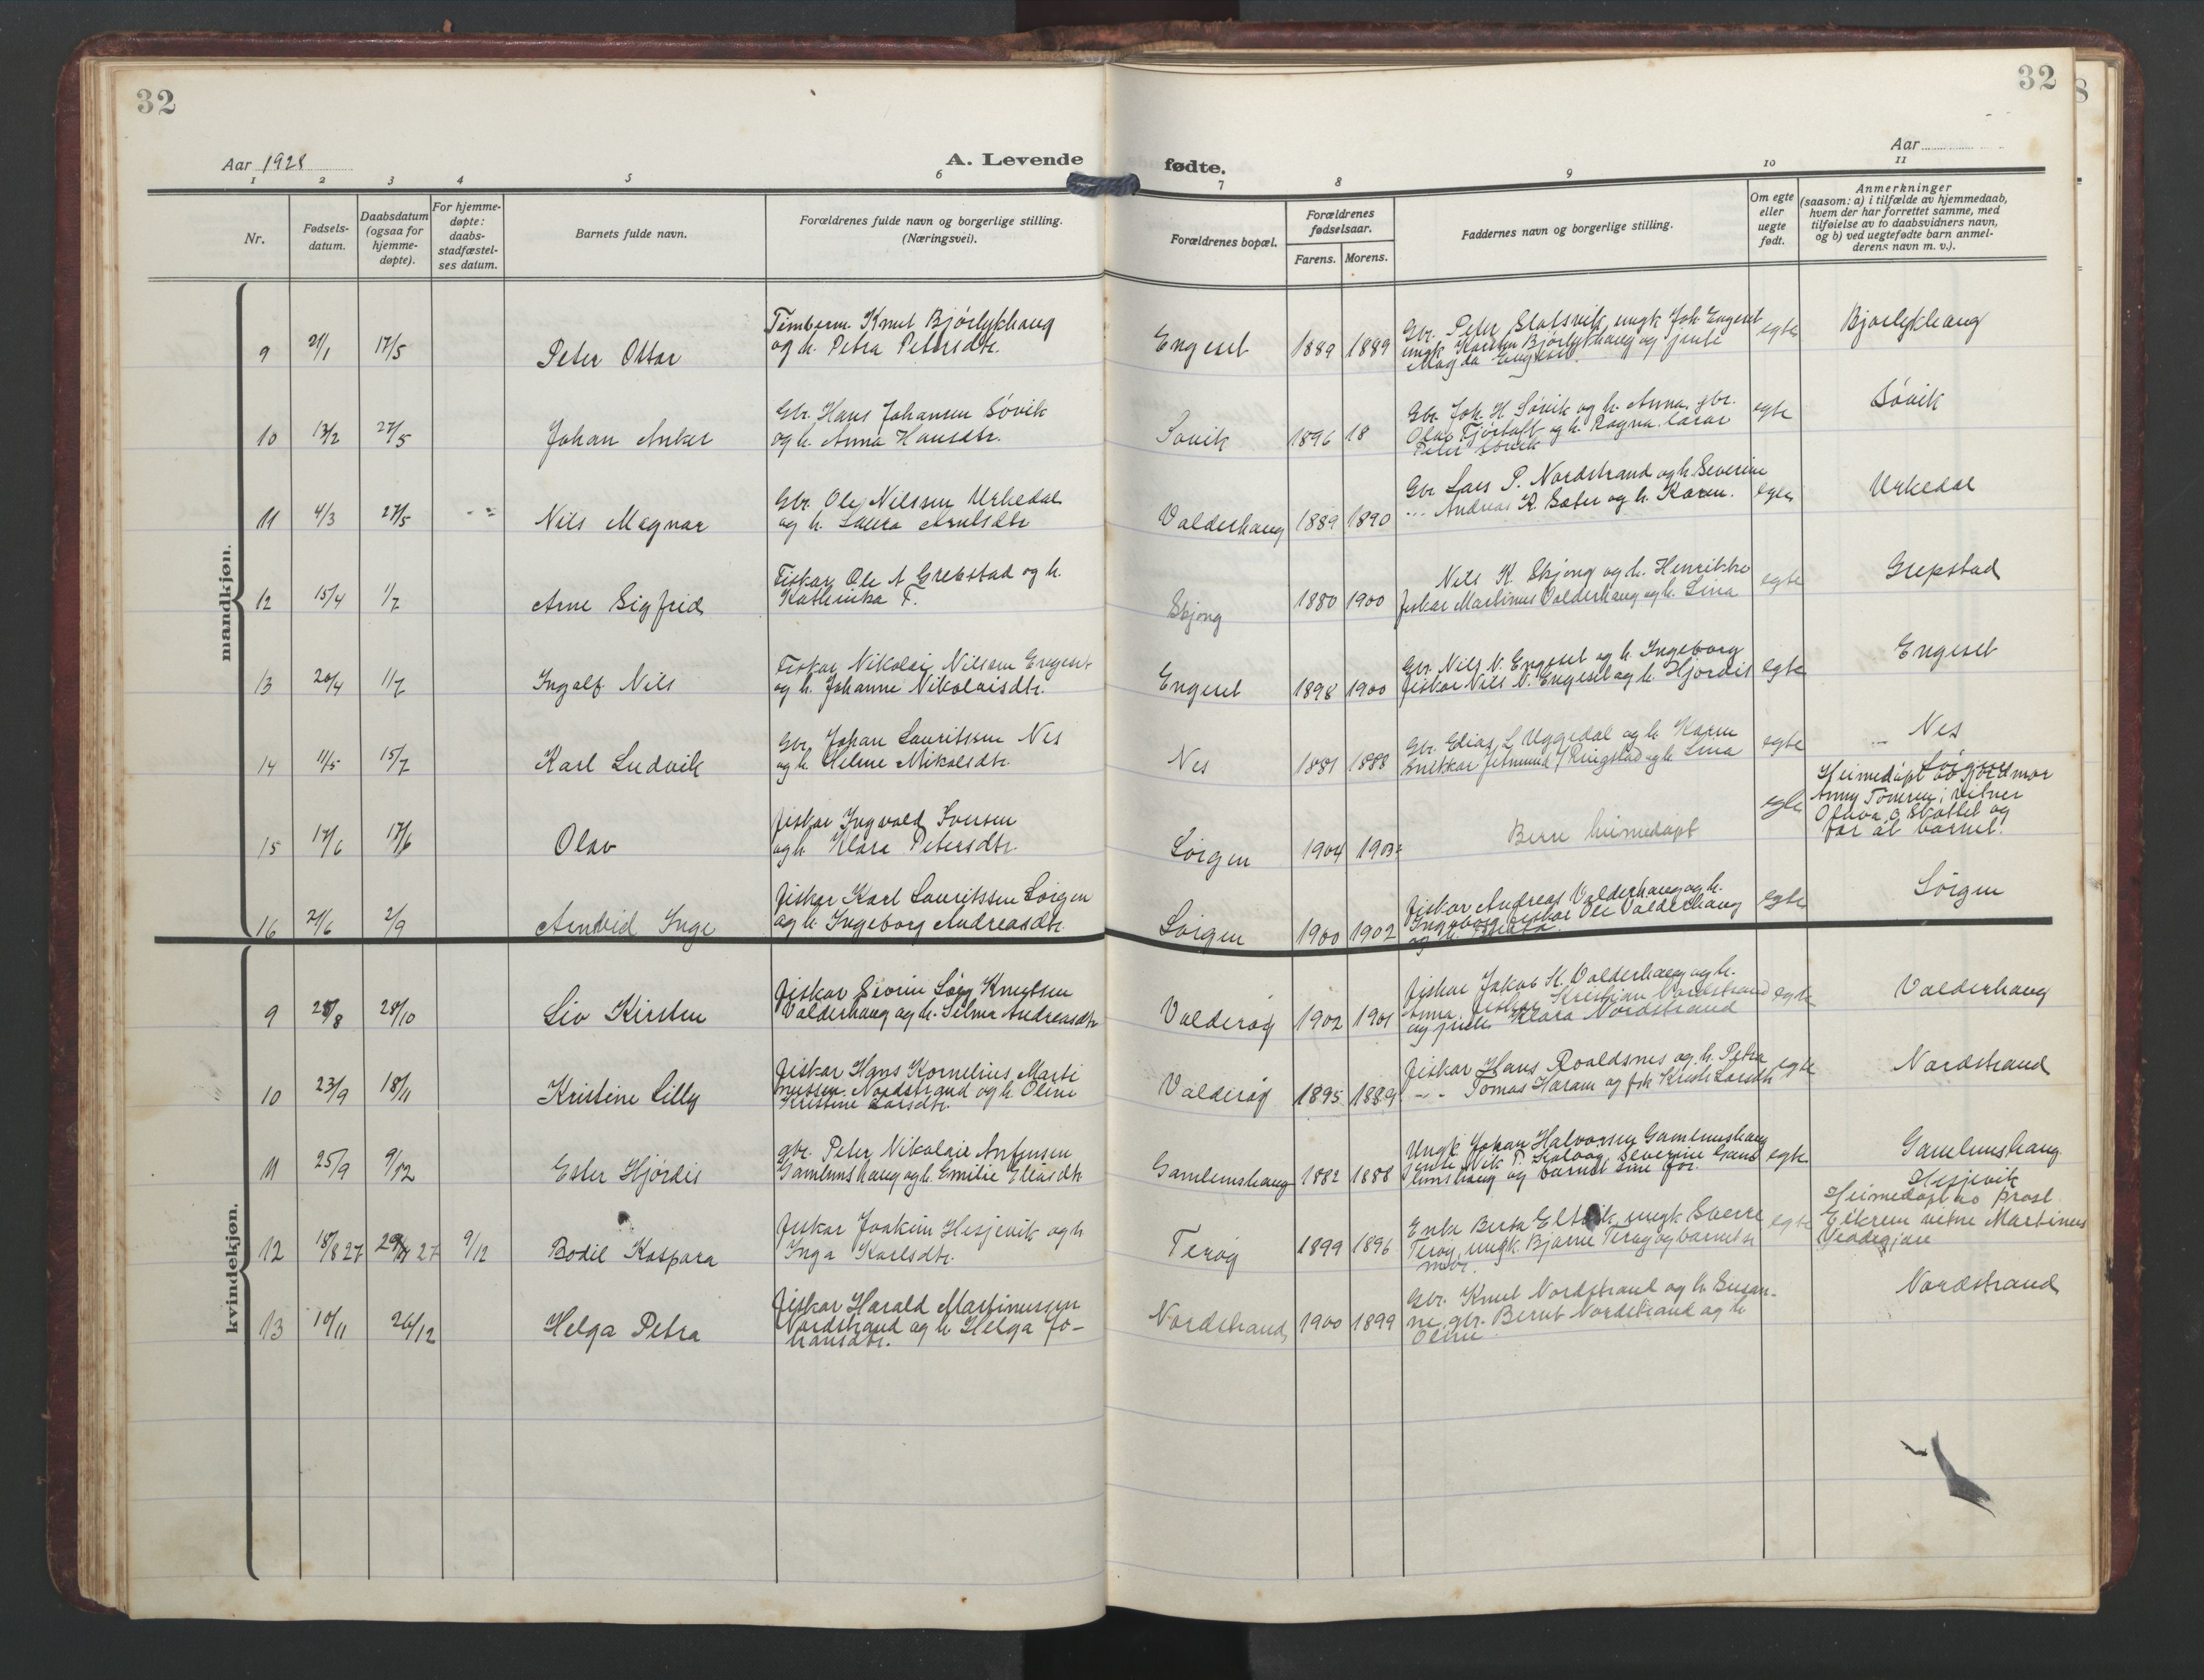 32
32
Aar 1928
A. Levende
fødte.
Aar
1 2 3 4 5 6 7 8 9 10 11
Nr.
Fødsels-
datum.
Daabsdatum
(ogsaa for
hjemme-
døpte).
For hjemme-
døpte:
daabs-
stadfæstel-
ses datum.
Barnets fulde navn.
Forældrenes fulde navn og borgerlige stilling.
(Næringsvei).
Forældrenes bopæl.
Forældrenes
fødselsaar.
Farens. Morens.
Faddernes navn og borgerlige stilling.
Om egte
eller
uegte
født.
Anmerkninger
(saasom: a) i tilfælde av hjemmedaab,
hvem der har forrettet samme, med
tilføielse av to daabsvidners navn,
og b) ved uegtefødte barn anmel-
derens navn m. v.).
mandkjøn.
9 21/1 17/5 Peter Ottar
Timberm. Knut Bjørlykhaug
og h. Petra Petersdtr.
Engeset 1889 1889
Gbr. Peter Slotsvik, ungk Joh. Engeset
ungk Karsten Bjørlykhaug og jente
Magda Engeset.
egte Bjørlykhaug
10 13/2 27/5 Johan Anker
Gbr. Hans Johansen Søvik
og h. Anna Hansdtr.
Søvik 1896 18
Gbr. Joh. H. Søvik og h. Anna, gbr.
Olav Fjørtoft og h. Ragna. lærar
Peter Søvik
egte Søvik
11 4/3 27/5 Nils Magnar
Gbr. Ole Nilssen Urkedal
og h. Laura
Valderhaug 1889 1890
Gbr Lars P. Nordstrand og h. Severine
Andreas K. Sæter og h. Karen.
egte Urkedal
12 15/4 1/7 Arne Sigfrid
Fiskar Ole A Grebstad og h.
Kathrinka F.
Skjong 1880 1900
Nils K. Skjong og h. Henrikke
fiskar Martinus Valderhaug og h. Lina
egte Grepstad
13 20/4 11/7 Ingolf Nils
Fiskar Nikolai Nilssen Engeset
og h. Johanne Nikolaisdtr.
Engeset 1898 1900
Gbr. Nils N. Engeset og h. Ingeborg
fiskar Nils N. Engeset og h. Hjørdis
egte Engeset
14 11/5 15/7 Karl Ludvik
Gbr. Johan Lauritssen Nes
og h. Helene Mikalsdtr.
Nes 1881 1888
Gbr. Elias L Uggedal og h. Karen
snikkar Amund Ringstad og h. Lina
egte Nes
15 17/6 17/6 Olav
fiskar Ingvald Iversen
og h. Klara Petersdtr.
Sørgen 1904 1903
Berre heimedøpt
egte Sørgen
Heimedøpt av jordmor
Anny Tomren; vitner
far åt barnet.
16 21/6 2/9 Arnvid Inge
fiskar Karl Lauritssen Sørgen
og h. Ingeborg Andreasdtr.
Sørgen 1900 1902
fiskar Andreas Valderhaug og h.
Ingeborg, fiskar Ole Valderhaug
og h.
egte Sørgen
kvindekjøn.
9 28/8 28/10 Liv Kirsten
fiskar Severin Knutsen
Valderhaug og h. Selma Andreasdtr
Valderøy 1902 1901
fiskar Jakob K. Valderhaug og h.
Anna, fiskar Kristian Nordstrand
og jente Klara Nordstrand
egte Valderhaug
10 23/9 18/11 Kristine Lilly
fiskar Hans Kornelius Marti
nussen Nordstrand og h. Oline
Kristine Larsdtr.
Valderøy 1895 1889
fiskar Hans Roaldsnes og h. Petra
Tomas Haram og
egte Nordstrand
11 25/9 9/12 Ester Hjørdis
gbr. Peter Nikolai Antonsen
Gamlemshaug og h. Emilie Eliasdtr.
Gamlemshaug 1882 1888
Ungk Johan Halvorsen Gamlemshaug
Severine Gam
lemshaug og barnet sine for.
egte Gamlemshaug
12 18/8 27 27 9/12 Bodil Kaspara
fiskar Joakim Hesjevik og h
Inga Karlsdtr.
Terøy 1899 1896
Enke Berta ungk Sverre
Terøy, ungk. Bjarne Terøy og barnet si
mor.
egte Hesjevik
Heimedøpt av prost
Eikrem vitne Martinus
13 10/11 26/12 Helga Petra
fiskar Harald Martinussen
Nordstrand og h Helga Jo-
hansdtr.
Nordstrand 1900 1899
Gbr. Knut Nordstrand og h. Susan-
ne, gbr. Bernt Nordstrand og h
Oline
Nordstrand